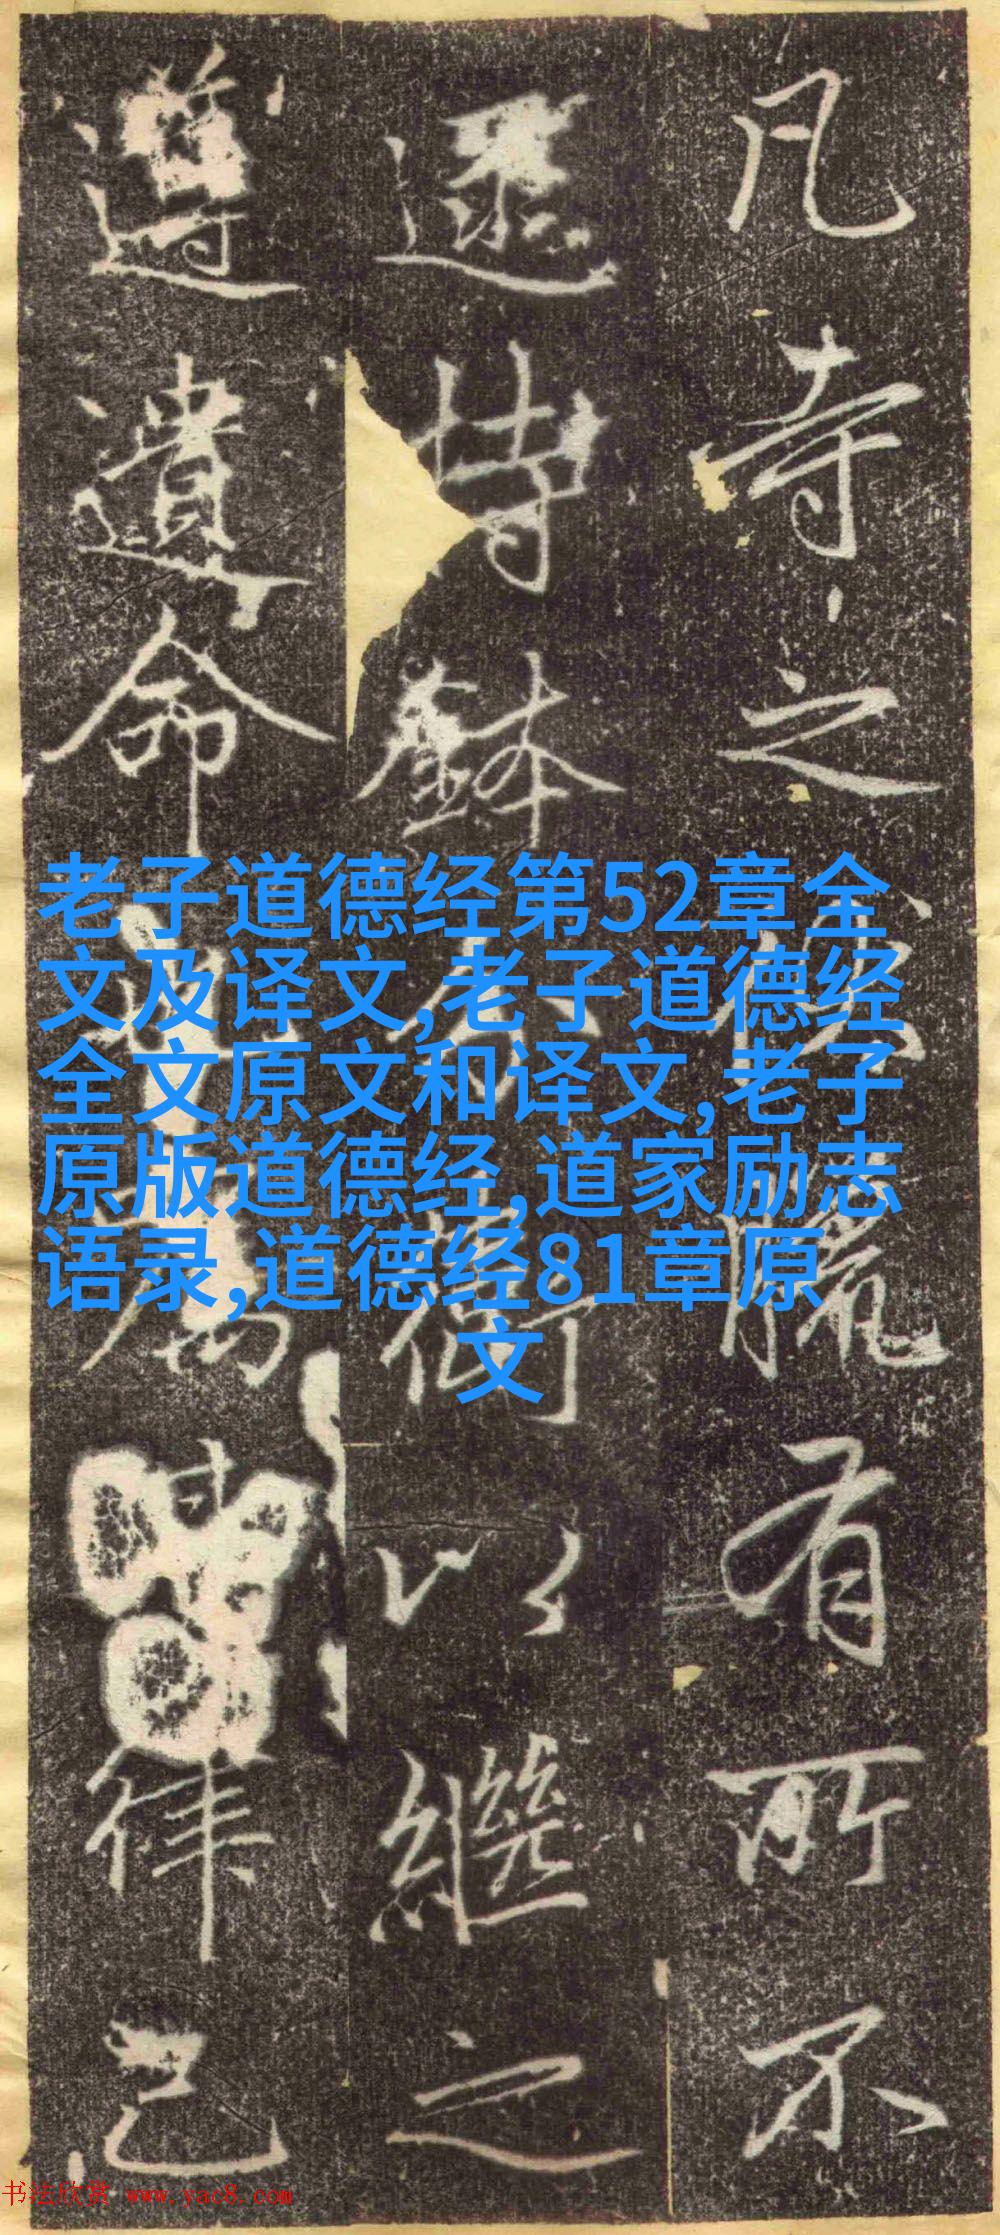 凡寺之有所不
持鉢以繼之
遵遺命為律己
老子道德经第52章全
文及译文,老子道德经
全文原文和译文,老子
原版道德经,道家励志
语录,道德经81章原
文
书法欣赏 www.yac8.com